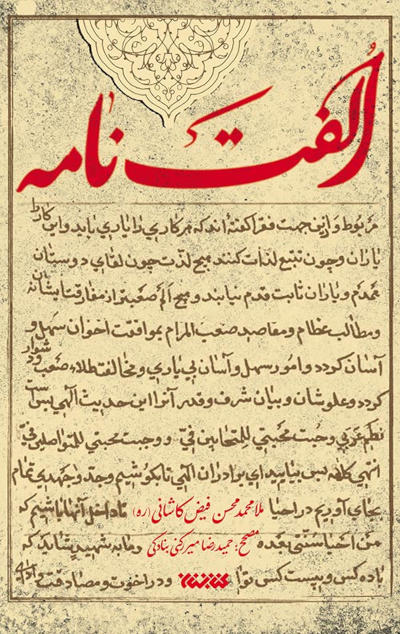 الفت نامه
مربوط و ازین جهت فقرا گفته‌اند که هر کاری را یاری باید و این کار را
یاران و چون تتبع لذات کنند هیچ لذت چون لقای دوستان
همدم و یاران ثابت قدم نیابند و هیچ الم صعبتر از مفارقت ایشان نه
و مطالب عظام و مقاصد صعب المرام بموافقت اخوان سهل و
آسان گردد و امور سهل و آسان بی یاری و مخالفت خلان صعب و دشوار
گردد و علو شان و بیان شرف و قدر آنرا این حدیث الهی بس است
وجبت محبتی للمتحابین فی و وجبت محبتی للمتواصلین فی
انتهی کلامه پس بیایید ای برادران الهی تا بکوشیم و جد و جهدی تمام
بجای آوریم در احیا ملامحمد محسن فیض کاشانی (ره) تا داخل آنها باشیم که
من احیا سنتی بعده مصحح: حمیدرضا میرکنی بنادکی شهید شاید که
یاده کس و بیست کس و در اخوت و مصادقت